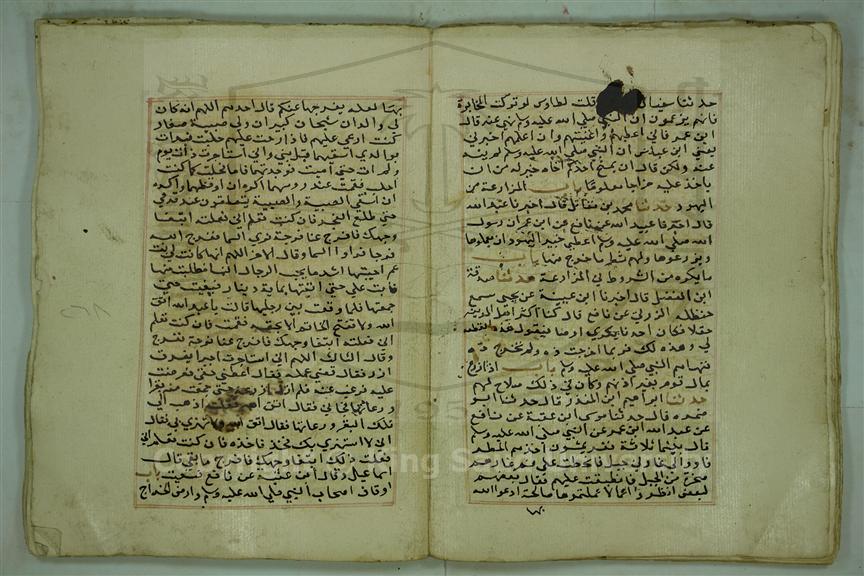 حدثنا سفيان قلت لطاوس لو تركت المخابرة
فانهم يزعمون ان النبي صلى الله عليه وسلم نهى عنه قال
اي عمرو اني اعطيهم واغنيهم وان اعلمهم اخبرني
يعني ابن عباس ان النبي صلى الله عليه وسلم لم ينه
عنه ولكن قال ان يمنح احدكم اخاه خير له من ان
ياخذ عليه خراجا معلوما باب المزارعة مع
اليهود حدثنا محمد بن مقاتل قال اخبرنا عبد الله
قال اخبرنا عبيد الله عن نافع عن ابن عمر ان رسول
الله صلى الله عليه وسلم اعطى خيبر اليهود ان يعملوها
ويزرعوها ولهم شطر ما خرج منها باب
ما يكره من الشروط في المزارعة حدثنا صدقة
ابن الفضل قال اخبرنا ابن عيينة عن يحيى سمع
حنظلة الزرقي عن رافع قال كنا اكثر اهل المدينة
حقلا فكان احدنا يكري ارضه فيقول هذه القطعة
لي وهذه لك فربما اخرجت ذه ولم تخرج ذه
فنهاهم النبي صلى الله عليه وسلم باب اذا زرع
بمال قوم بغير اذنهم وكان في ذلك صلاح لهم
حدثنا ابراهيم ابن المنذر قال حدثنا ابو
ضمرة قال حدثنا موسى ابن عقبة عن نافع
عن عبد الله ابن عمر عن النبي صلى الله عليه وسلم
قال بينما ثلاثة نفر يمشون اخذهم المطر
فاووا الى غار في جبل فانحطت على فم غارهم
صخرة من الجبل فانطبقت عليهم فقال بعضهم
لبعض انظروا اعمالا عملتموها صالحة ادعوا الله
بها
بها لعله يفرجها عنكم قال احدهم اللهم انه كان
لي والدان شيخان كبيران ولي صبية صغار
كنت ارعى عليهم فاذا رحت عليهم حلبت فبدات
بوالدي اسقيهما قبل بني واني استاخرت ذات يوم
ولم ات حتى امسيت فوجدتهما ناما فحلبت كما كنت
احلب فقمت عند رؤسهما اكره ان اوقظهما واكره
ان اسقي الصبية والصبية يتضاغون عند قدمي
حتى طلع الفجر فان كنت تعلم اني فعلته ابتغا
وجهك فافرج عنا فرجة نرى السما ففرج الله
فرجا فراوا السما وقال الاخر اللهم انها كانت لي بنت
عم احببتها اشد ما يحب الرجال النسا فطلبت منها
فابت علي حتى اتيتها بماية دينار فبغيت حتى
جمعتها فلما وقعت بين رجليها قالت يا عبد الله اتق
الله ولا تفتح الخاتم الا بحقه فقمت فان كنت تعلم
اني فعلته ابتغا وجهك فافرج عنا فرجة ففرج
وقال الثالث اللهم اني استاجرت اجيرا بفرق
ارز فلما قضى عمله فقال اعطني حقي فعرضت
عليه فرغب عنه فلم ازل ازرعه حتى جمعت منه بقرا
ورعاتها فجاني فقال اتق الله فقلت اذهب الى
تلك البقر ورعاتها فخذ فقال اتق الله ولا تستهزي بي فقال
اني لا استهزي بك فخذ فاخذه فان كنت تعلم اني
فعلت ذلك ابتغا وجهك فافرج ما بقي قال
اسماعيل وقال ابن عقبة عن نافع فسعيت باب
اوقاف اصحاب النبي صلى الله عليه وسلم وارض الخراج